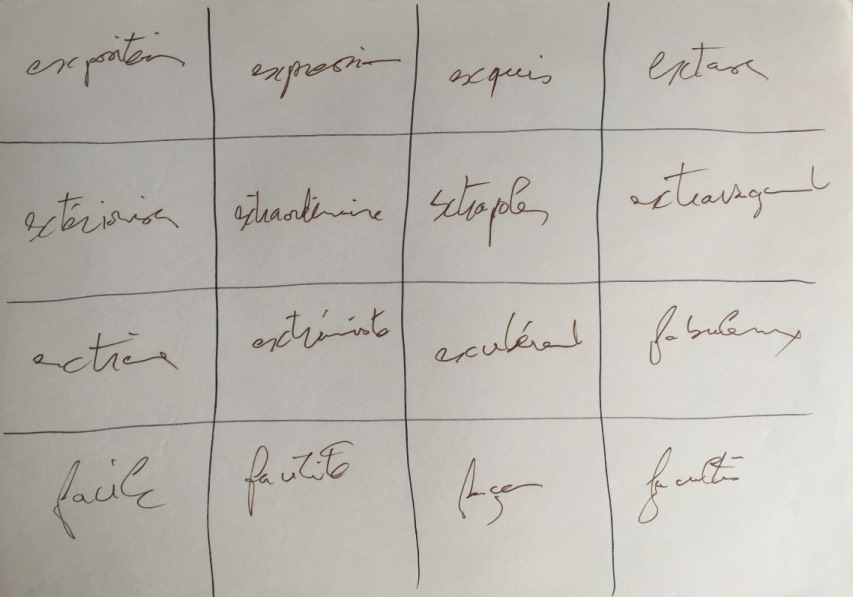 exposition expression exquis extase
extérioriser extraordinaire extrapoler extravagant
extrême extrémiste exubérant fabuleux
facile facilité façon faculté